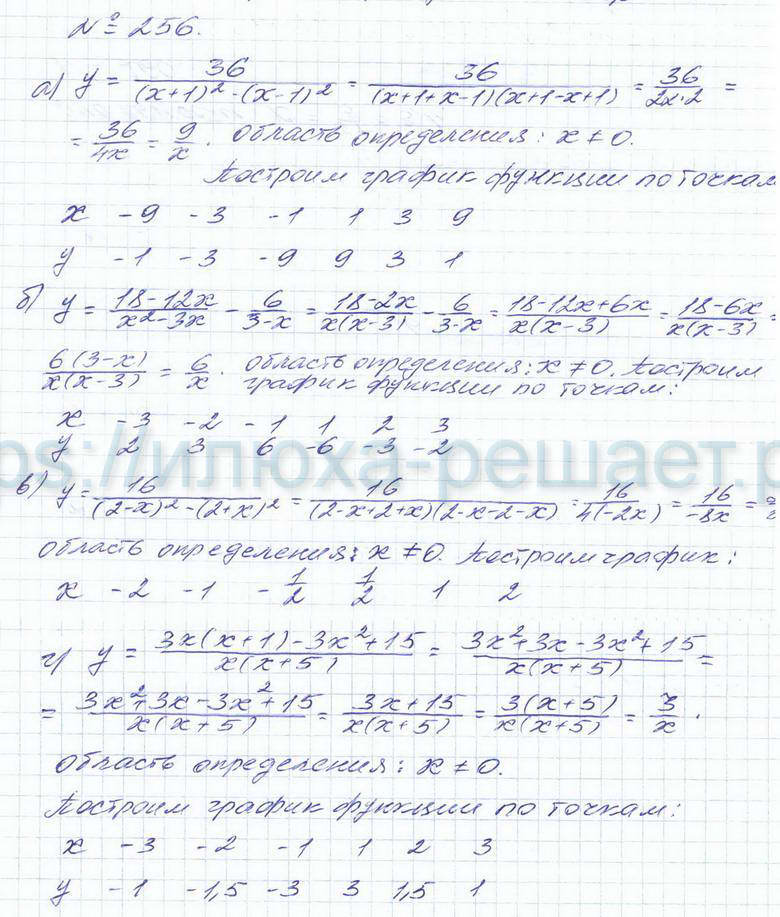 № 256.
а) y = 36/((x+1)² - (x-1)²) = 36/((x+1+x-1)(x+1-x+1)) = 36/(2x·2) =
= 36/4x = 9/x. область определения: x ≠ 0.
Построим график функции по точкам
x -9 -3 -1 1 3 9
y -1 -3 -9 9 3 1
б) y = (18-12x)/(x²-3x) - 6/(3-x) = (18-2x)/(x(x-3)) - 6/(3-x) = (18-12x+6x)/(x(x-3)) = (18-6x)/(x(x-3)) =
6(3-x)/(x(x-3)) = 6/x. область определения: x ≠ 0. Построим
график функции по точкам:
x -3 -2 -1 1 2 3
y 2 3 6 -6 -3 -2
ps://илюха-решает.р
в) y = 16/((2-x)² - (2+x)²) = 16/((2-x+2+x)(2-x-2-x)) = 16/(4(-2x)) = 16/(-8x) =
область определения: x ≠ 0. Построим график:
x -2 -1 -1/2 1/2 1 2
г) y = (3x(x+1)-3x²+15)/(x(x+5)) = (3x²+3x-3x²+15)/(x(x+5)) =
= (3x²+3x-3x²+15)/(x(x+5)) = (3x+15)/(x(x+5)) = 3(x+5)/(x(x+5)) = 3/x.
область определения: x ≠ 0.
Построим график функции по точкам:
x -3 -2 -1 1 2 3
y -1 -1,5 -3 3 1,5 1